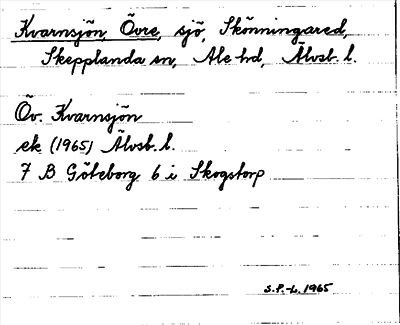 Kvarnsjön, Övre, sjö, Skönningared,
Skepplanda sn, Ale hd, Älvsb. l.
Öv. Kvarnsjön
ek (1965) Älvsb. l.
7 B Göteborg 6 i Skogstorp
S.P.-L. 1965